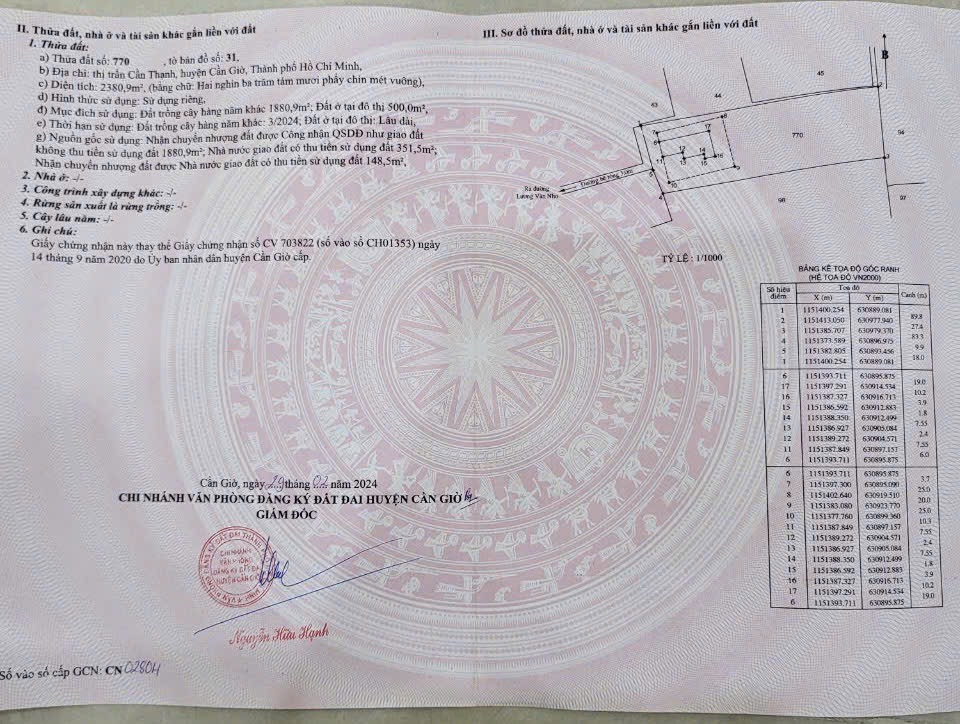 II. Thửa đất, nhà ở và tài sản khác gắn liền với đất
1. Thửa đất:
a) Thửa đất số: 770 , tờ bản đồ số: 31,
b) Địa chỉ: thị trấn Cần Thạnh, huyện Cần Giờ, Thành phố Hồ Chí Minh,
c) Diện tích: 2380,9m², (bằng chữ: Hai nghìn ba trăm tám mươi phẩy chín mét vuông),
d) Hình thức sử dụng: Sử dụng riêng,
đ) Mục đích sử dụng: Đất trồng cây hàng năm khác 1880,9m²; Đất ở tại đô thị 500,0m²,
e) Thời hạn sử dụng: Đất trồng cây hàng năm khác: 3/2024; Đất ở tại đô thị: Lâu dài,
g) Nguồn gốc sử dụng: Nhận chuyển nhượng đất được Công nhận QSDĐ như giao đất
không thu tiền sử dụng đất 1880,9m²; Nhà nước giao đất có thu tiền sử dụng đất 351,5m²;
Nhận chuyển nhượng đất được Nhà nước giao đất có thu tiền sử dụng đất 148,5m²,
2. Nhà ở: -/-
3. Công trình xây dựng khác: -/-
4. Rừng sản xuất là rừng trồng: -/-
5. Cây lâu năm: -/-
6. Ghi chú:
Giấy chứng nhận này thay thế Giấy chứng nhận số CV 703822 (số vào sổ CH01353) ngày
14 tháng 9 năm 2020 do Ủy ban nhân dân huyện Cần Giờ cấp.
Cần Giờ, ngày 29 tháng 02 năm 2024
CHI NHÁNH VĂN PHÒNG ĐĂNG KÝ ĐẤT ĐAI HUYỆN CẦN GIỜ
GIÁM ĐỐC
CHI NHÁNH
VĂN PHÒNG
ĐĂNG KÝ ĐẤT ĐAI
HUYỆN CẦN GIỜ
Nguyễn Hữu Hạnh
Số vào sổ cấp GCN: CN 02804
III. Sơ đồ thửa đất, nhà ở và tài sản khác gắn liền với đất
B
45
44
63
770
94
98
97
Đường bê tông
Ra đường
Lương Văn Nho
TỶ LỆ : 1/1000
BẢNG KÊ TỌA ĐỘ GÓC RANH
(HỆ TỌA ĐỘ VN2000)
Số hiệu điểm Tọa độ Cạnh (m)
X (m) Y (m)
1 1151400.254 630889.081
89.8
2 1151413.050 630977.940
27.4
3 1151385.707 630979.370
83.3
4 1151373.589 630896.975
9.9
5 1151382.805 630893.456
18.0
1 1151400.254 630889.081
6 1151393.711 630895.875
19.0
17 1151397.291 630914.534
10.2
16 1151387.327 630916.713
3.9
15 1151386.592 630912.883
1.8
14 1151388.350 630912.499
7.55
13 1151386.927 630905.084
2.4
12 1151389.272 630904.571
7.55
11 1151387.849 630897.157
6.0
6 1151393.711 630895.875
6 1151393.711 630895.875
3.7
7 1151397.300 630895.090
25.0
8 1151402.640 630919.510
20.0
9 1151383.080 630923.770
25.0
10 1151377.760 630899.360
10.3
11 1151387.849 630897.157
7.55
12 1151389.272 630904.571
2.4
13 1151386.927 630905.084
7.55
14 1151388.350 630912.499
1.8
15 1151386.592 630912.883
3.9
16 1151387.327 630916.713
10.2
17 1151397.291 630914.534
19.0
6 1151393.711 630895.875